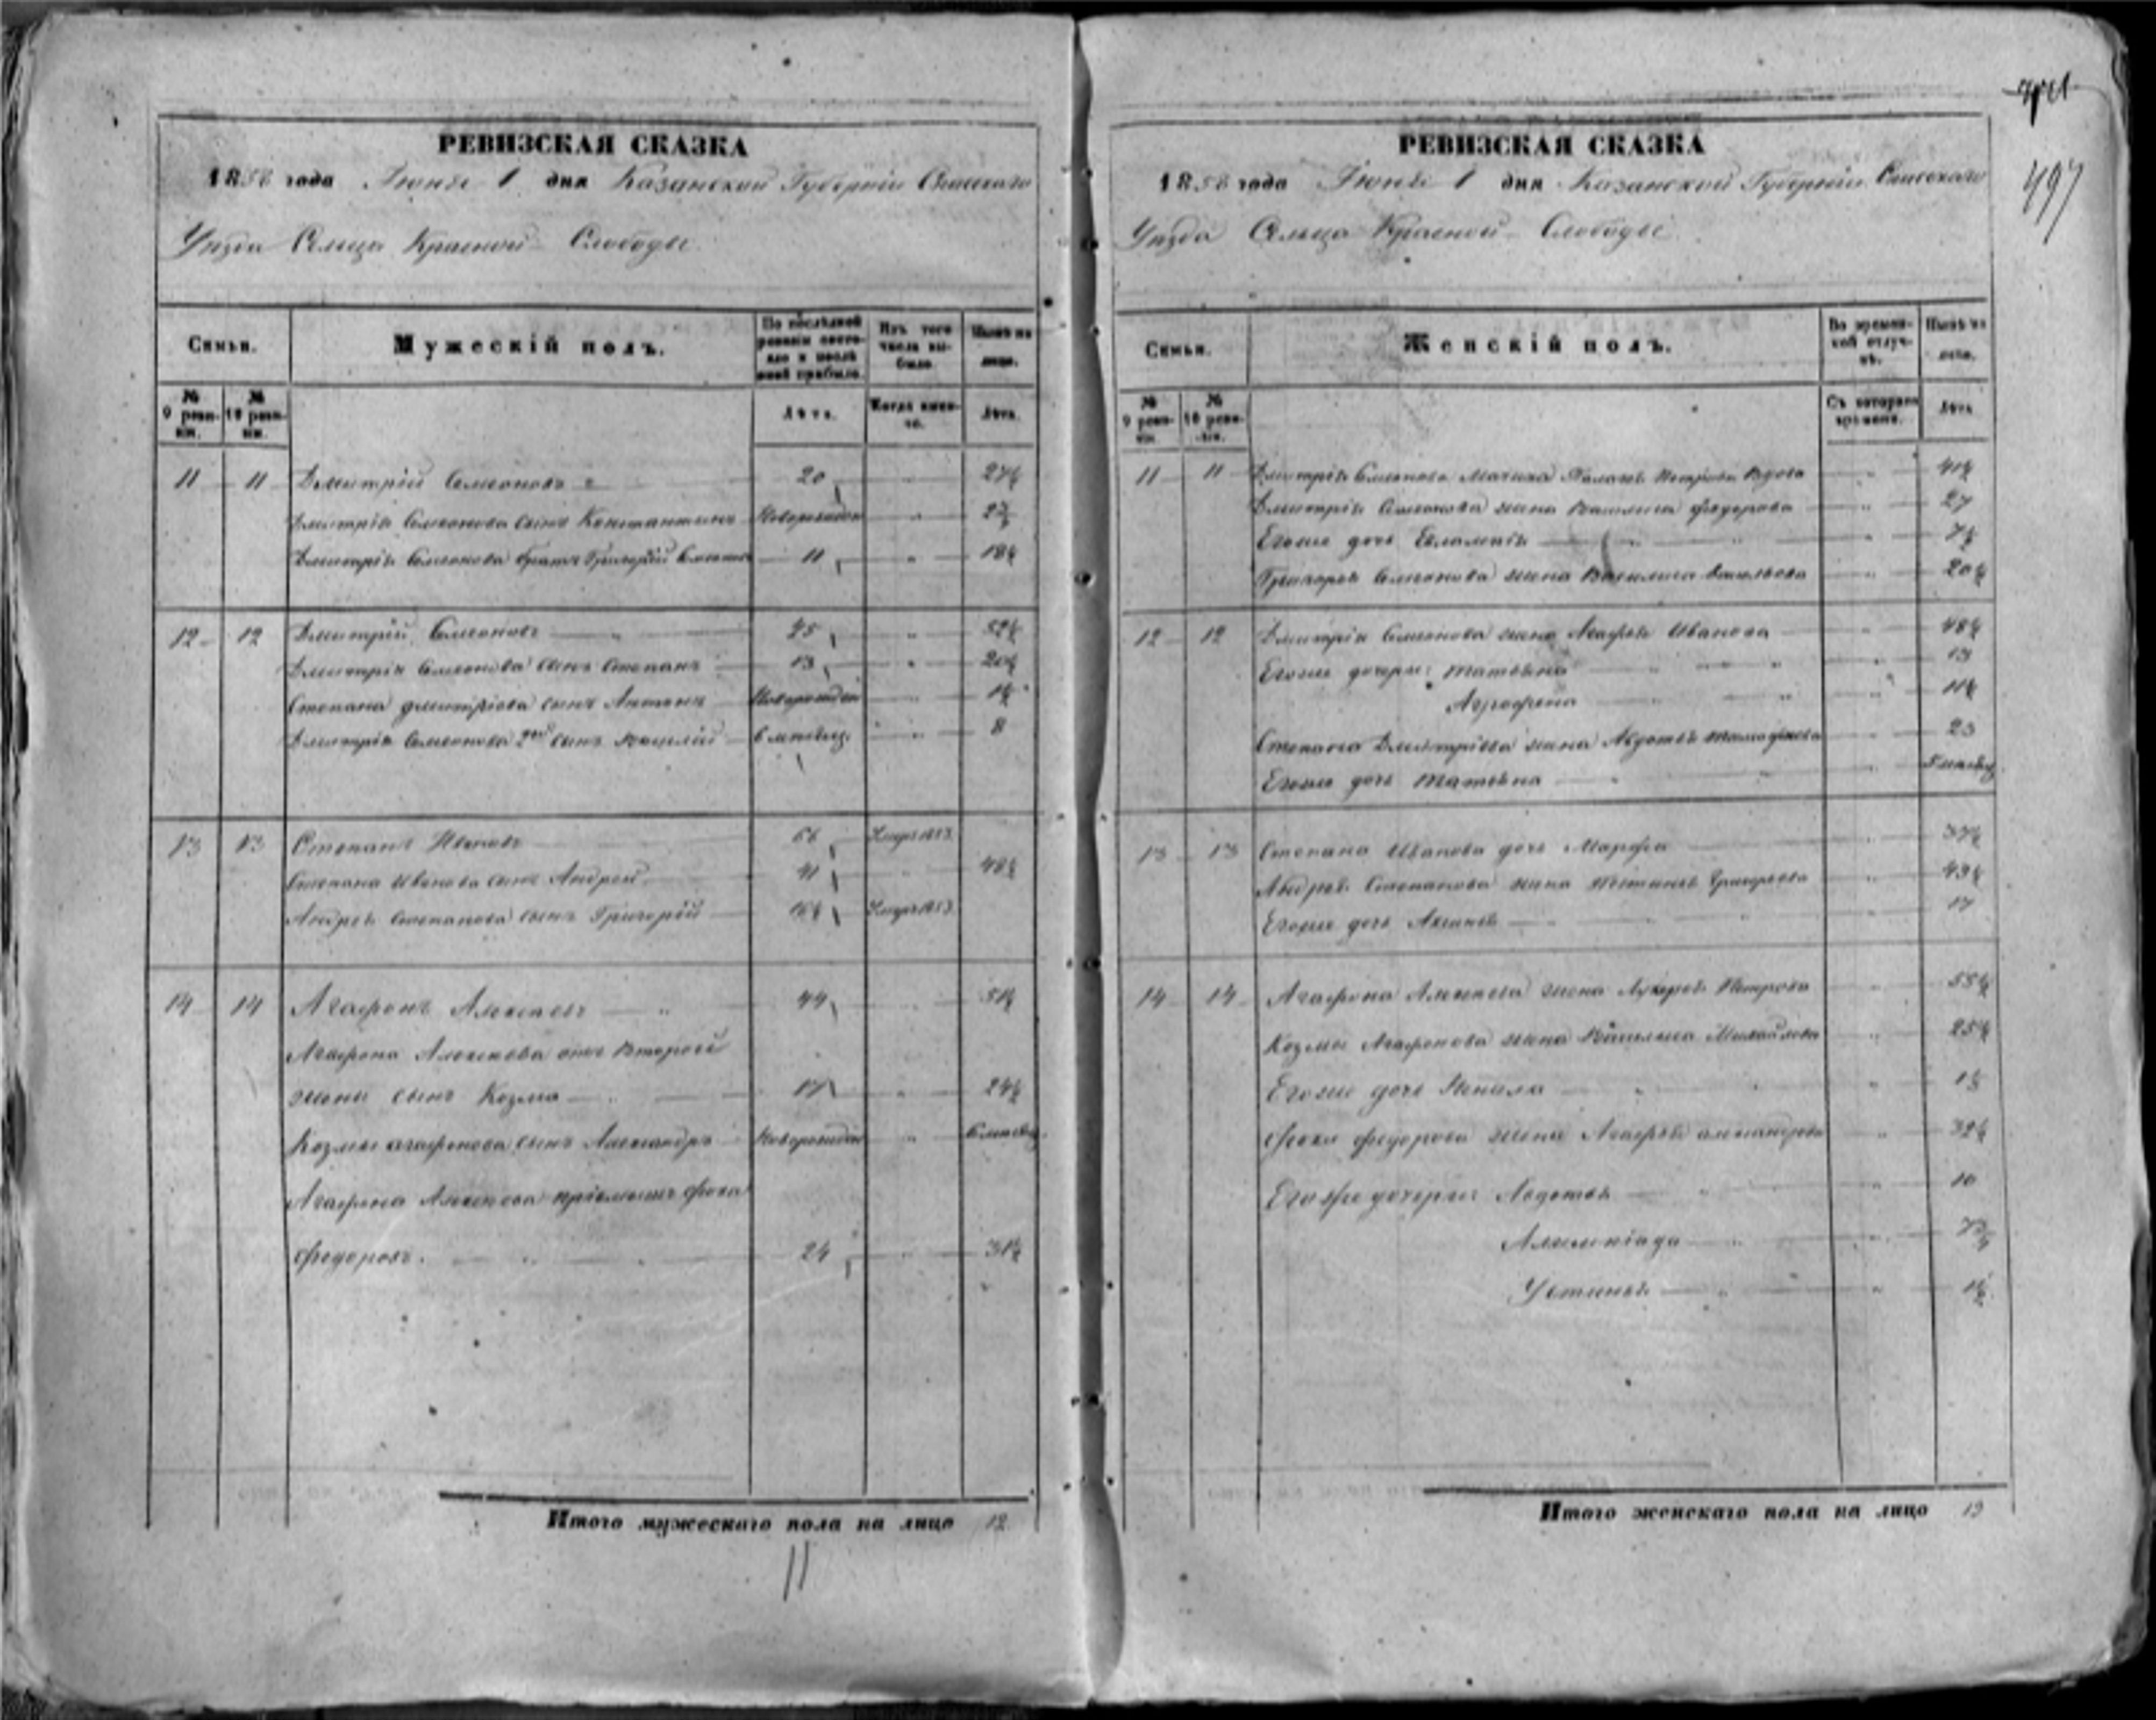 РЕВИЗСКАЯ СКАЗКА
1858 года Іюня 1 дня Казанской Губерніи Спасскаго
Уѣзда Сельца Красной Слободы.
Семьи.
Мужескій полъ.
По послѣдней ревизіи состояло и послѣ оной прибыло.
Изъ того числа выбыло.
Нынѣ на лицо.
№ 9 ревизіи.
№ 10 ревизіи.
Лѣта.
Когда именно.
Лѣта.
11 11 Дмитрій Семеновъ 20 27½
Дмитрія Семенова сынъ Константинъ Новорожден
Дмитрія Семенова братъ Григорій 11 18½
12 12 Дмитрій Семеновъ 45 52½
Дмитрія Семенова сынъ Степанъ 13 20½
Степана Дмитріева сынъ Новорожден 1½
Дмитрія Семенова 2й сынъ Василій 8
13 13 Степанъ Ивановъ 66 1853
Степана Иванова сынъ Андрей 41 48½
Андрея Степанова сынъ Григорій 1853
14 14 Агафонъ Алексеевъ 44 51½
Агафона Алексеева отъ второй
жены сынъ Козма 17 24½
Козмы Агафонова сынъ Александръ Новорожден
Агафона Алексеева пріемышъ Фока
Федоровъ. 24 31½
Итого мужескаго пола на лицо 12
11
497
РЕВИЗСКАЯ СКАЗКА
1858 года Іюня 1 дня Казанской Губерніи Спасскаго
Уѣзда Сельца Красной Слободы
Семьи.
Женскій полъ.
Во временной отлучкѣ.
Нынѣ на лицо.
№ 9 ревизіи.
№ 10 ревизіи.
Съ котораго времени.
Лѣта
11 11 Дмитрія Семенова Мачиха Петрова Вдова
Дмитрія Семенова жена Василиса Федорова 27
Егоже дочь 7½
Григорья Семенова жена Василиса 20½
12 12 Дмитрія Семенова жена Агафья Иванова 48½
Егоже дочери: Татьяна 13
Аграфена 11½
Степана Дмитріева жена Авдотья 23
Егоже дочь Татьяна
13 13 Степана Иванова дочь Марфа 37½
Андрея Степанова жена Григорьева
Егоже дочь Аксинья 17
14 14 Агафона Алексеева жена Лукерья Петрова 55½
Козмы Агафонова жена Василиса Михайлова 25½
Егоже дочь
Фоки Федорова жена Агафья Александрова 32½
Егоже дочери: Авдотья 10
Устинья 1½
Итого женскаго пола на лицо 19